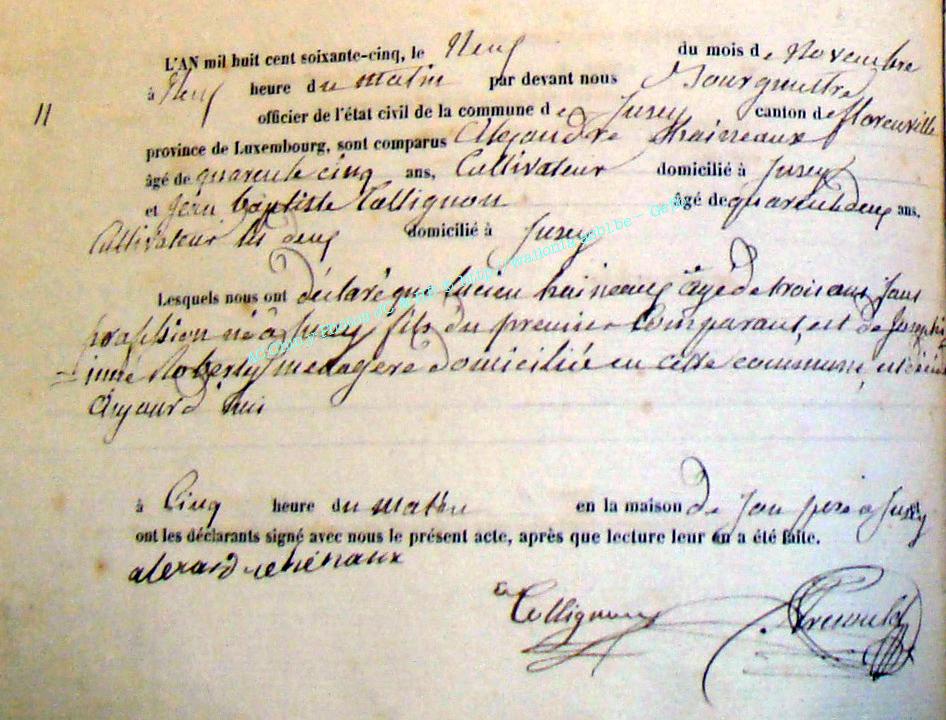 L'AN mil huit cent soixante-cinq, le Neuf du mois de Novembre
à Neuf heure du matin par devant nous Bourgmestre
11
officier de l'état civil de la commune de Jusey canton de florenville
province de Luxembourg, sont comparus Alexandre haineaux
âgé de quarente cinq ans, Cultivateur domicilié à Jusey
et Jean baptiste Collignon âgé de quarente deux ans,
Cultivateur les deux domicilié à Jusey
Lesquels nous ont déclaré que lucien haineaux âgé de trois ans sans
profession né à Jusey fils du premier Comparant, et de
Roberty menagere domiciliée en cette commune, est
Aujourd hui
à Cinq heure du matin en la maison de son père à Jusey
ont les déclarants signé avec nous le présent acte, après que lecture leur en a été faite.
Collignon